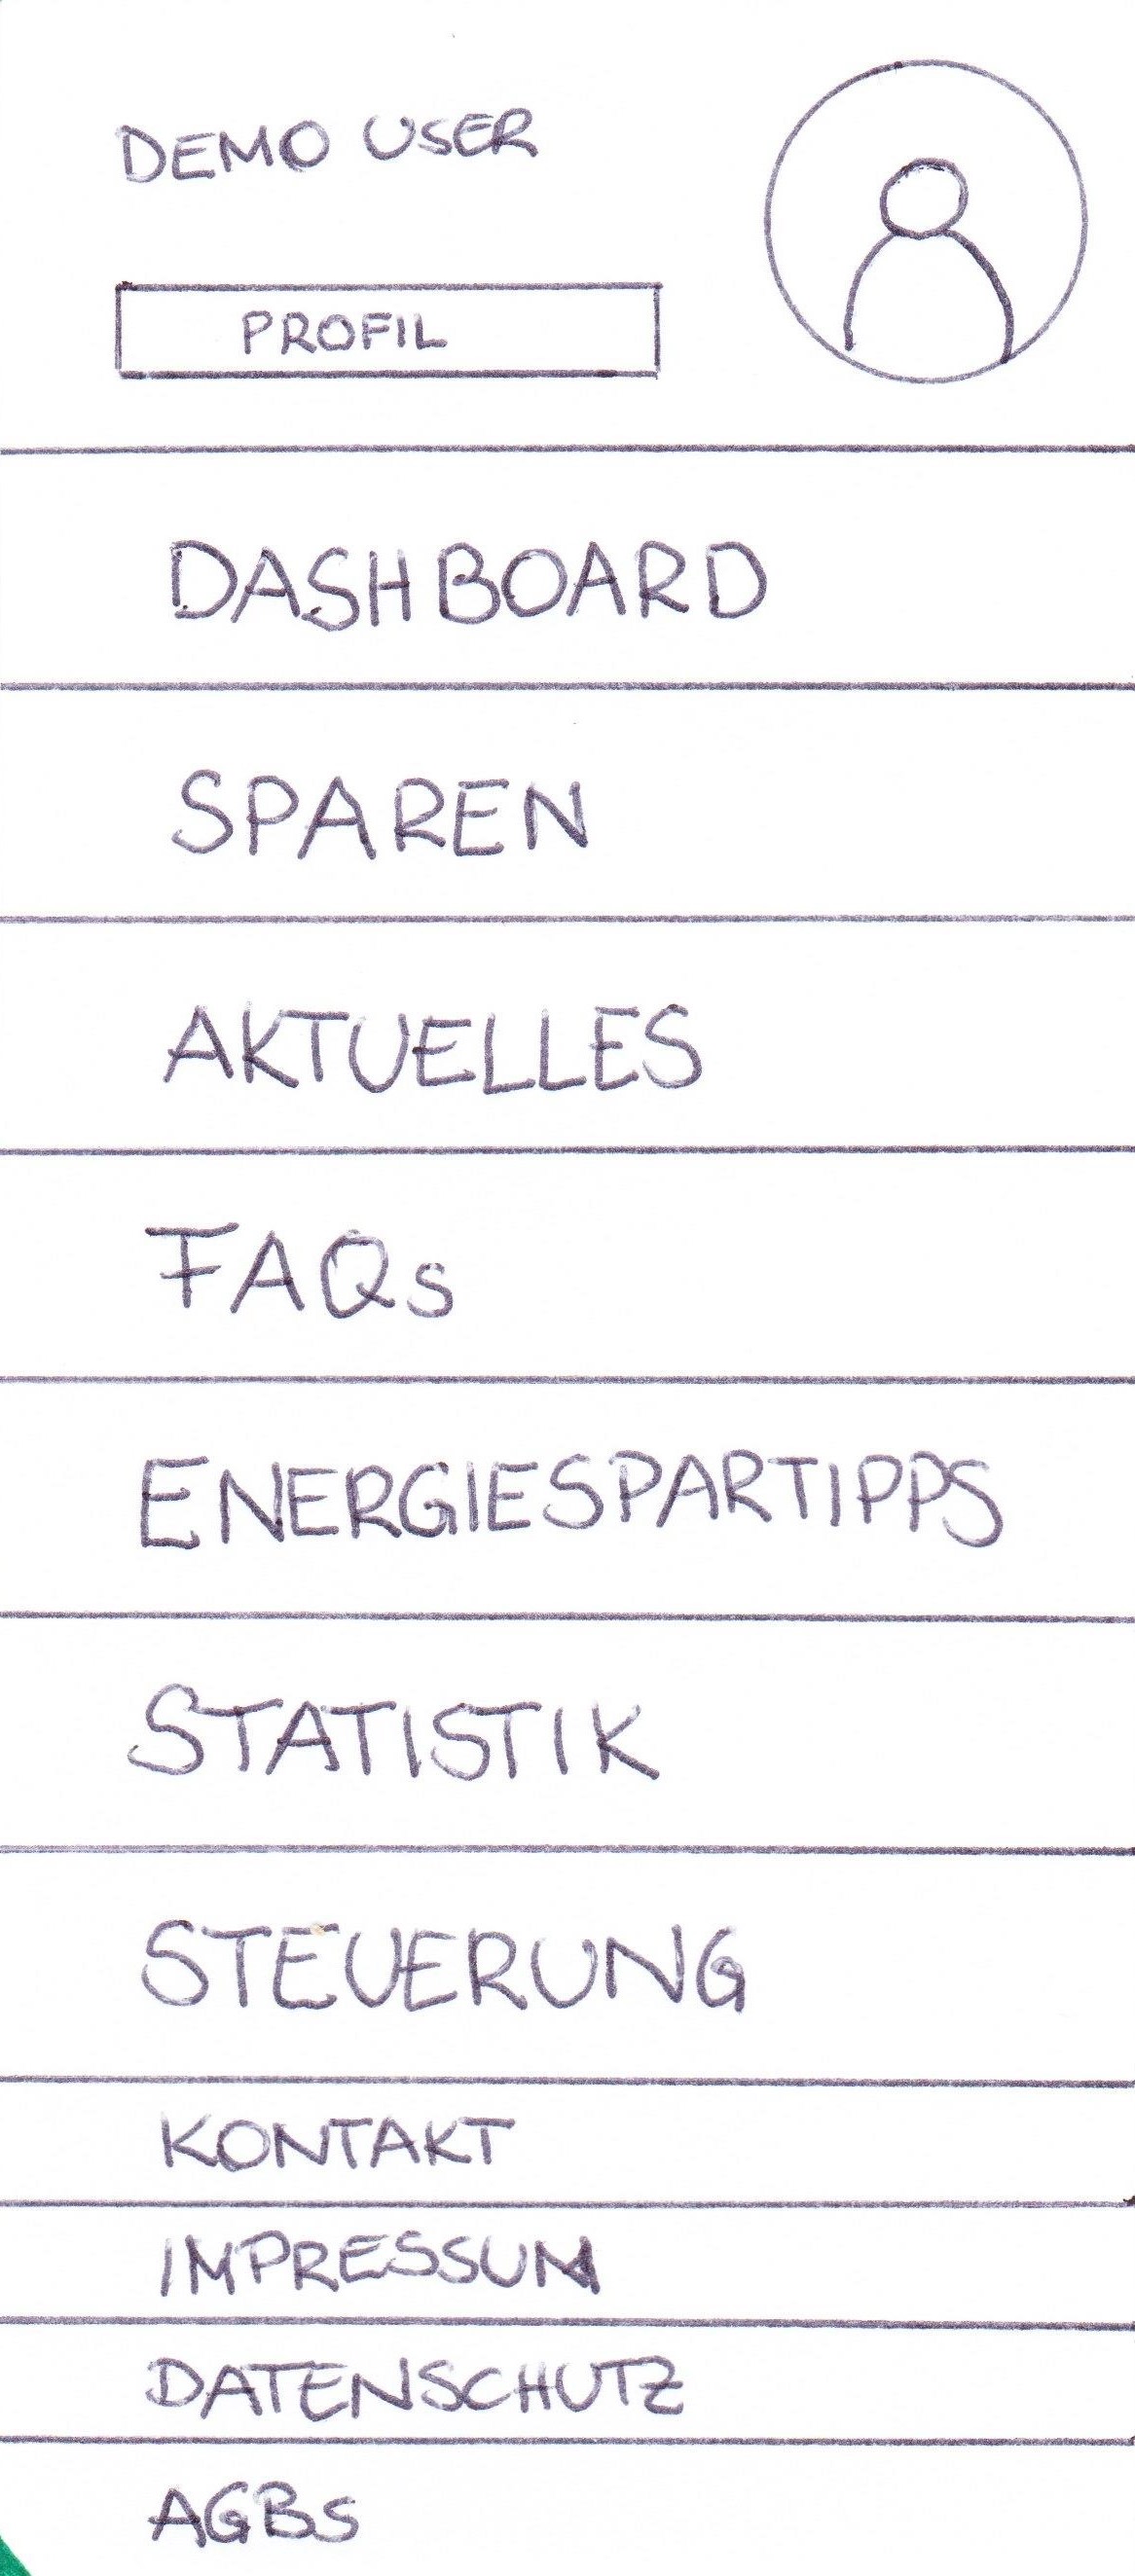 DEMO USER
PROFIL
DASHBOARD
SPAREN
AKTUELLES
FAQs
ENERGIESPARTIPPS
STATISTIK
STEUERUNG
KONTAKT
IMPRESSUM
DATENSCHUTZ
AGBs